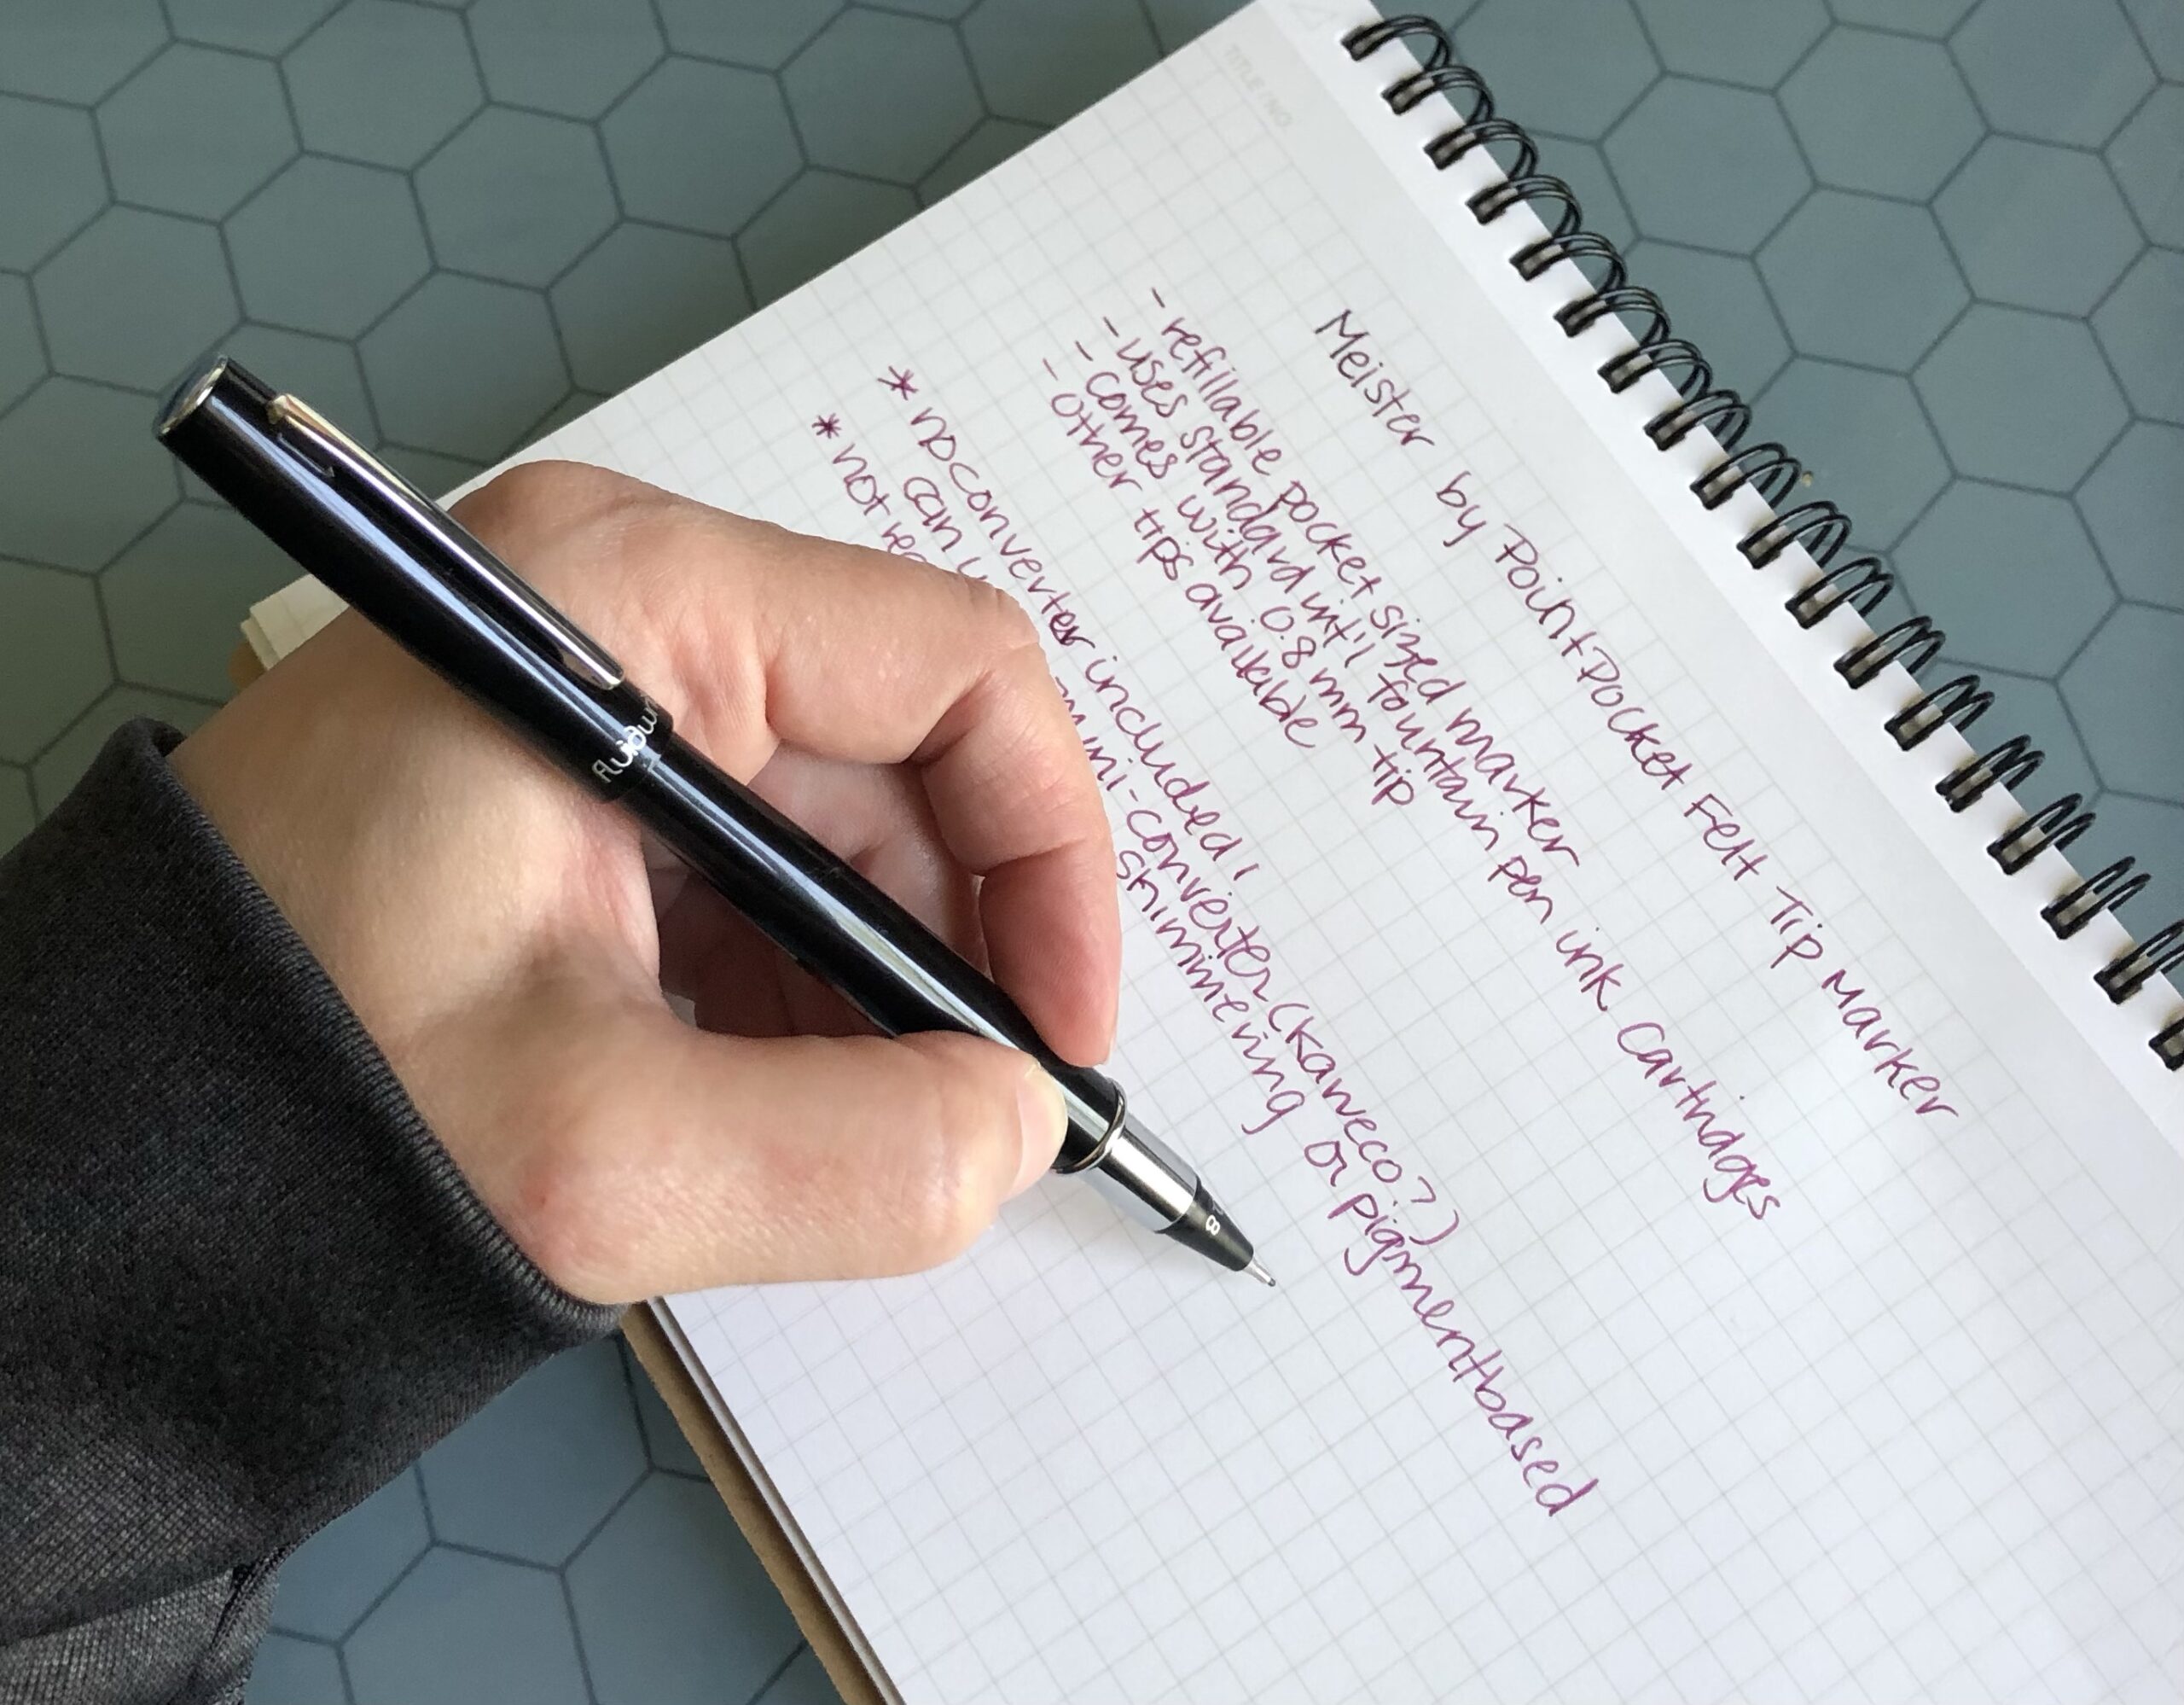 TITLE / NO.
Meister by Point Pocket Felt Tip Marker
- refillable pocket sized marker
- uses standard int'l fountain pen ink cartridges
- comes with 0.8 mm tip
- Other tips available
* no converter included!
can mini-converter (Kaweco?)
* not shimmering or pigment based
8